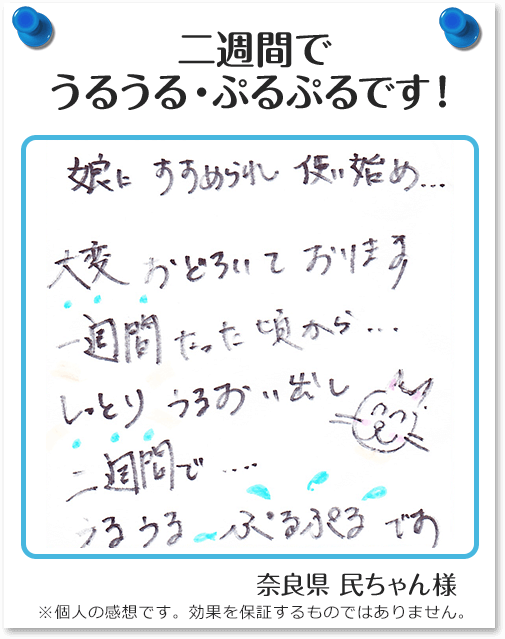 二週間で
うるうる・ぷるぷるです！
娘に すすめられ 使い始め...
大変 おどろいて おります
一週間たった頃から...
しっとり うるおい出し
二週間で ....
うるうる ぷるぷるです
奈良県 民ちゃん様
※個人の感想です。効果を保証するものではありません。